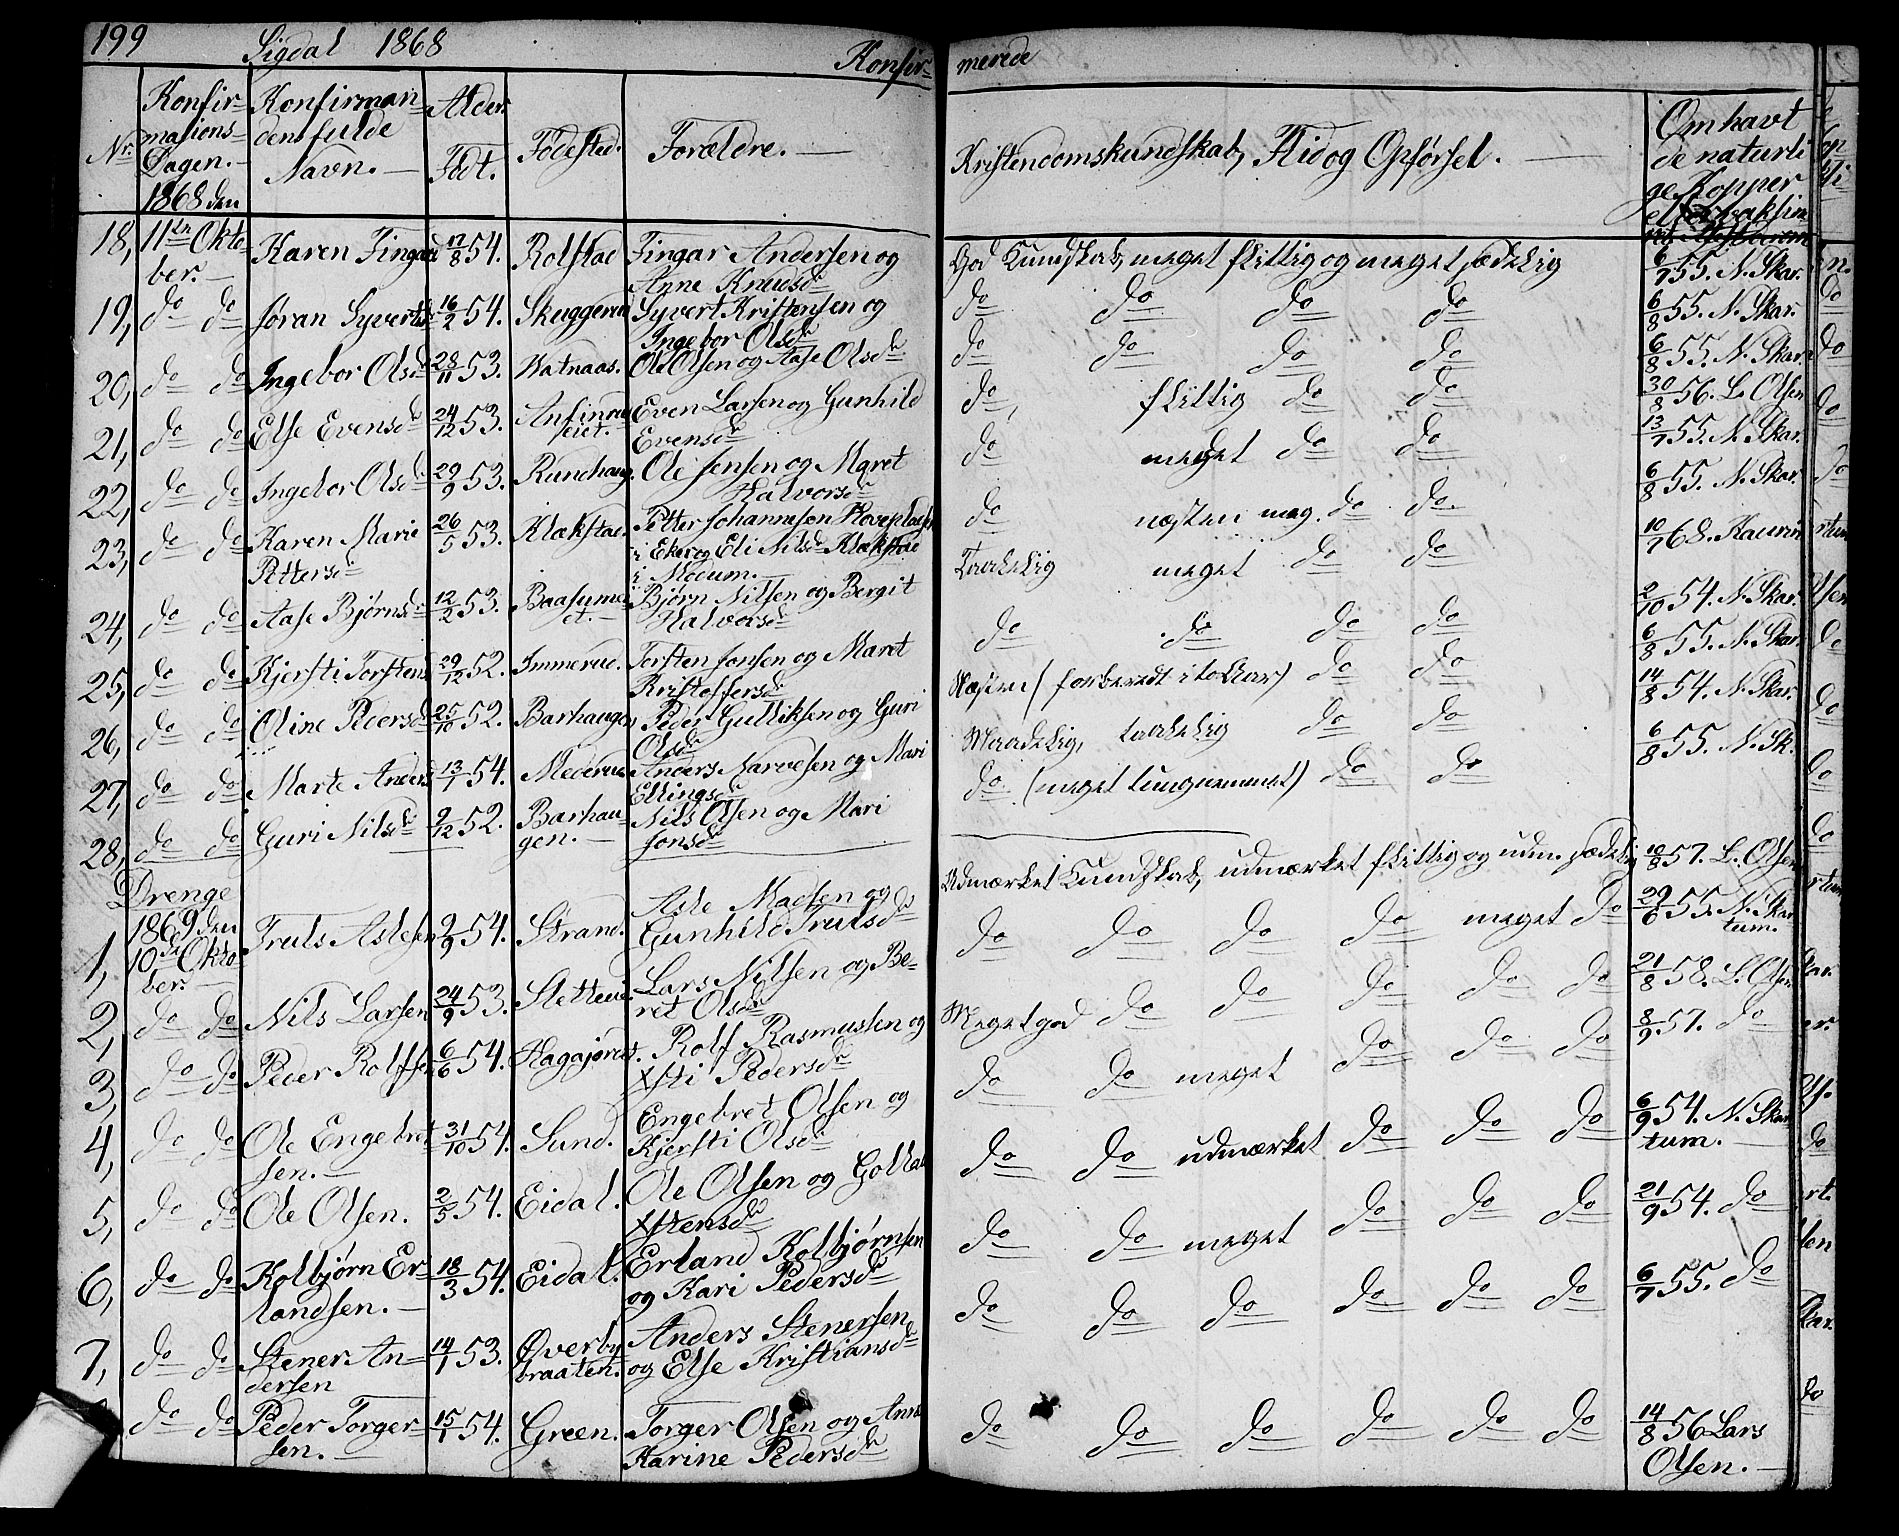 199 Sigdal 1868 Konfir-
merede
Nr. Konfirmations-Dagen. 1868 den | Konfirmandens fulde Navn. | Alder Født. | Fødested. | Forældre. | Kristendomskundskab, Flid og Opførsel. | Om havt de naturlige Kopper eller vaksin
18, 11te Oktober. Karen Fingars 17/8 54. Rolstad Fingar Andersen og Anne Knudsdr God Kundskab, meget flittig og meget sædelig 6/7 55. N. Skar.
19, do do Jøran Syvertsdr 16/2 54. Skuggerud Syvert Kristensen og Ingebor Olsdr do do do do 6/8 55. N. Skar.
20, do do Ingebor Olsdr 28/11 53. Watnaas. Ole Olsen og Aase Olsdr do do do do 6/8 55. N. Skar
21, do do Else Evensdr 24/12 53. Anfinrud eiet. Even Larsen og Gunhild Evensdr do, flittig do do 30/8 56. L. Olsen
22, do do Ingebor Olsdr 29/9 53. Rundhaug. Ole Jensen og Maret Halvorsdr do meget do do 13/7 55. N. Skar.
23, do do Karen Marie Pettersdr 26/5 53. Klækstad. Petter Johannesen Hoveplads i Eker og Eli Nilsdr Klækstad i Modum. do næsten meg. do do 6/8 55. N. Skar.
24, do do Aase Bjørnsdr 12/2 53. Baasumeiet. Bjørn Nilsen og Bergit Halvorsdr Taalelig meget do do 10/7 68. Kaurin
25, do do Kjersti Torstens 29/12 52. Immerud. Torsten Jonsen og Maret Kristoffersdr do do do do 2/10 54. N. Skar.
26, do do Oline Pedersdr 25/10 52. Barhaugen Peder Gulliksen og Guri Olsdr Næsten (forberedt i to Aar) do do 6/8 55. N. Skar
27, do do Marte Anders 13/1 54. Mederud Anders Narvesen og Mari Ellingsdr Maadelig, taalelig do do 14/8 54. N. Skar.
28, do do Guri Nilsdr 9/12 52. Barhaugen. Nils Olsen og Mari Jonsdr do (meget tungnemmet) do do 6/8 55. N. Sk.
Drenge
1869 den
1, 10de Oktober. Truls Aslesen 2/9 54. Strand. Asle Madsen og Gunhild Trulsdr Udmærket Kundskab, udmærket flittig og udm. sædelig 10/8 57. L. Olsen
2, do do Nils Larsen 24/9 53. Sletteeie. Lars Nilsen og Beret Olsdr do do do do meget do 29/6 55. N. Skartum.
3, do do Peder Rolfsen 6/6 54. Hagajordet. Rolf Rasmussen og Kjsti Pedersdr Meget god do do do do do 21/8 58. L. Olsen
4, do do Ole Engebretsen. 31/10 54. Sund. Engebret Olsen og Kjersti Olsdr do do meget do do do 8/9 57. do
5, do do Ole Olsen. 2/5 54. Eidal. Ole Olsen og Golla Kjstensdr do do udmærket do do do 6/9 54. N. Skartum.
6, do do Kolbjørn Erlandsen. 18/3 54. Eidal. Erland Kolbjørnsen og Kari Pedersdr do do meget do do do 21/9 54. do
7, do do Stener Andersen 14/1 53. Øverbybraaten. Anders Stenersen og Else Kristiansdr do do do do do do 6/7 55. do
do do Peder Torgersen. 15/1 54. Green. Torger Olsen og Anne Karine Pedersdr do do do do do do 14/8 56 Lars Olsen.